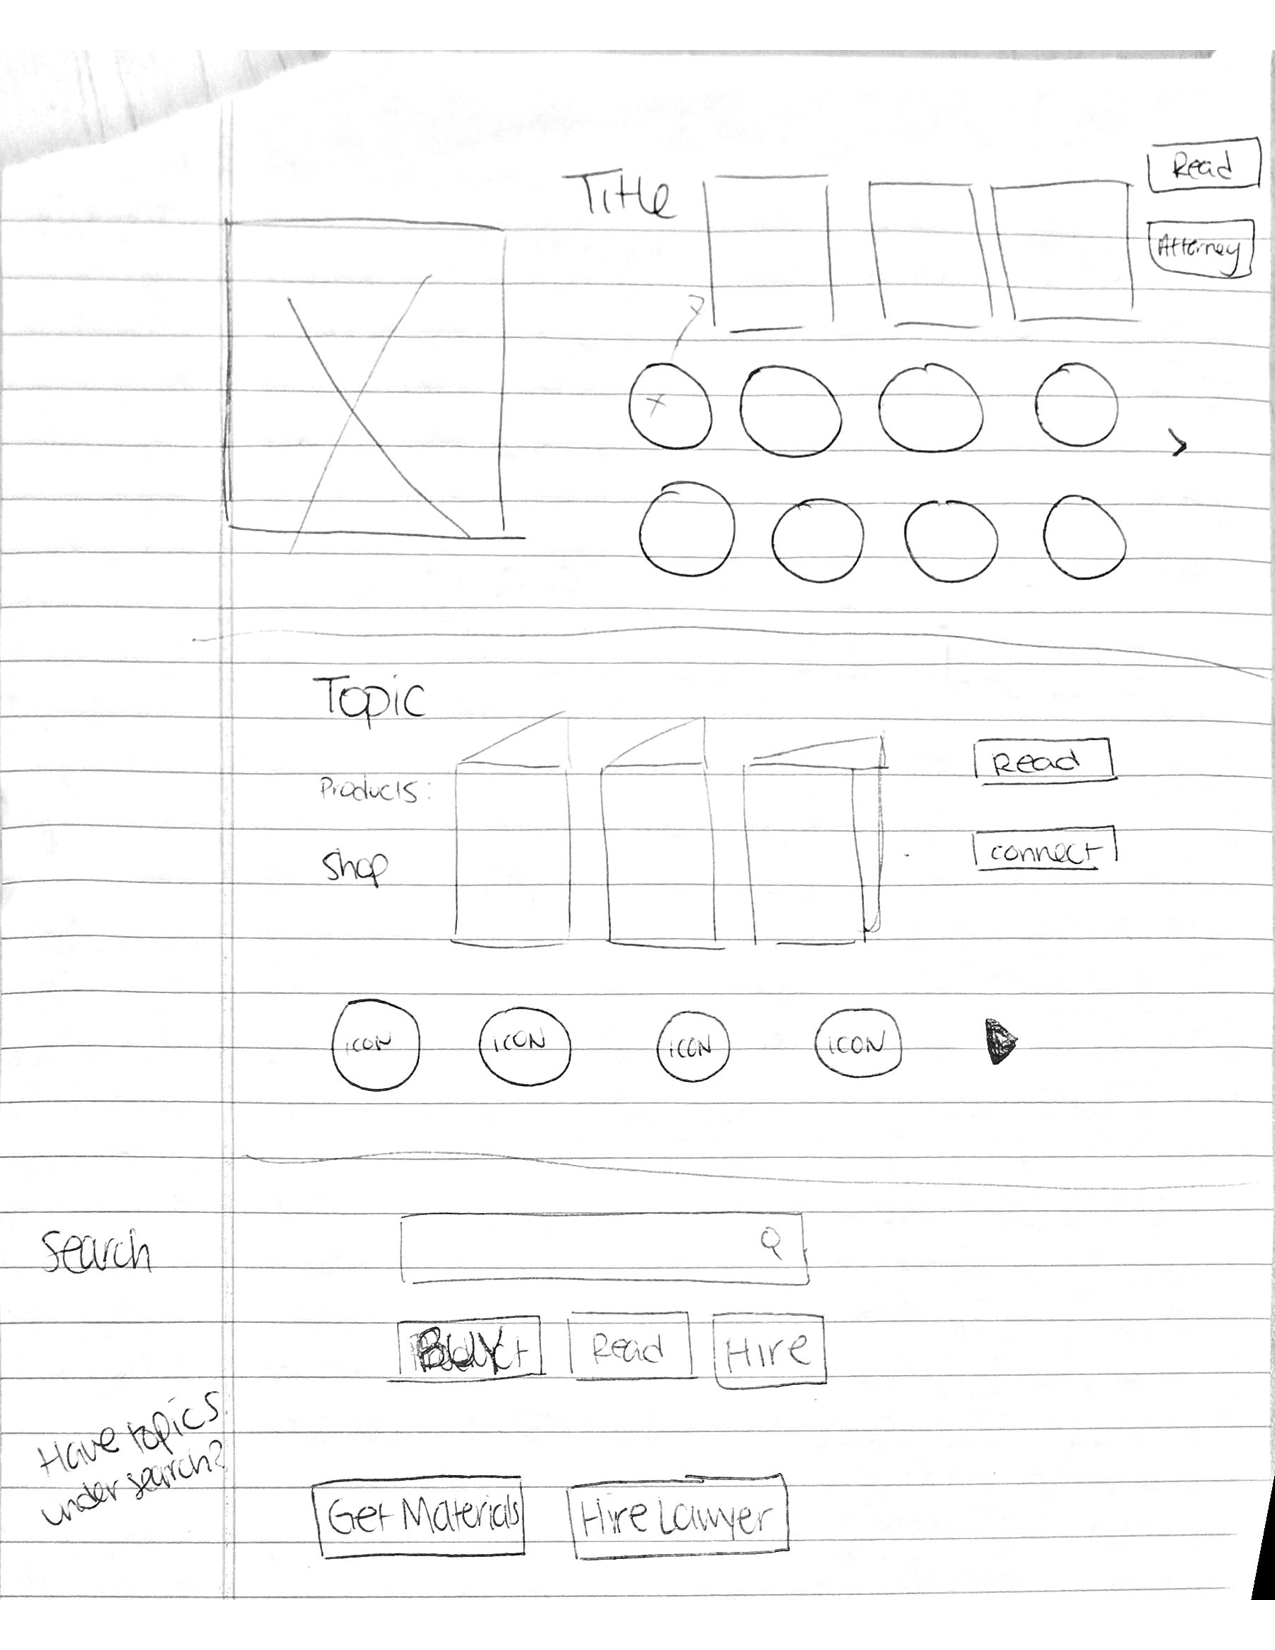 Title
Read
Attorney
Topic
Products:
Shop
Read
connect
iCON
iCON
iCON
iCON
Search
BUY
Read
Hire
Have topics
under search?
Get Materials
Hire Lawyer